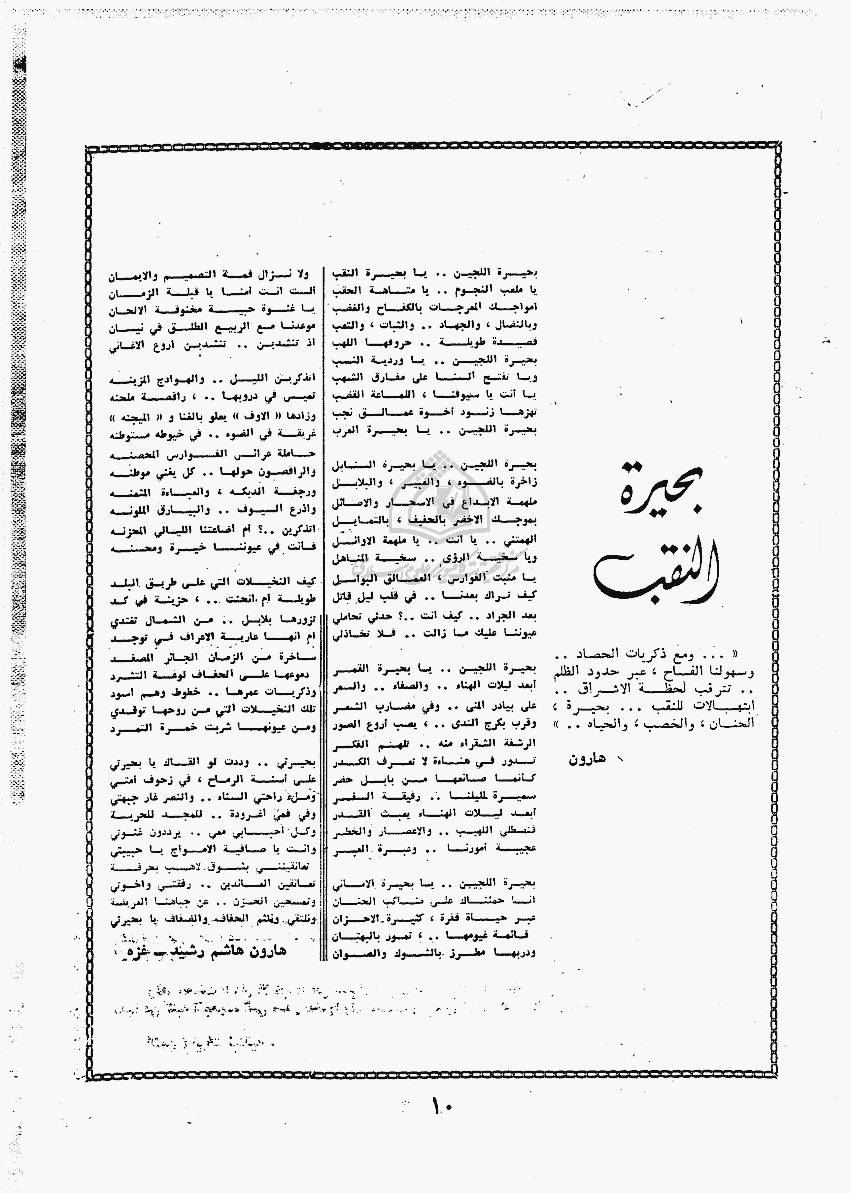 بحيرة
النقب
« ... ومع ذكريات الحصاد ..
وسهولنا الفساح ، عبر حدود الظلم
.. تترقب لحظة الاشراق ..
ابتهالات للنقب ... بحيرة ،
الحنان ، والخصب ، والحياه .. »
هارون
بحيرة اللجين .. يا بحيرة النقب
يا ملعب النجوم .. يا متاهة الحقب
امواجك المرجات بالكفاح والغضب
وبالنضال ، والجهاد .. والثبات ، والتعب
قصيدة طويلة .. حروفها اللهب
بحيرة اللجين .. يا وردية النسب
ويا تفتح السنا على مفارق الشهب
يا أنت يا سيوفنا ، اللماعة القضب
تهزها زنود اخوة عمالق نجب
بحيرة اللجين .. يا بحيرة العرب
بحيرة اللجين .. يا بحيرة السنابل
زاخرة بالضوء ، والعبير ، والبلابل
ملهمة الابداع في الاسحار والاصائل
بموجك الاخضر بالحفيف ، بالتمايل
الهمتني .. يا انت .. يا ملهمة الاوائل
ويا سخية الرؤى .. سخية المناهل
يا منبت الفوارس ، العمالق البواسل
كيف تراك بعدنا .. في قلب ليل قاتل
بعد الجراد .. كيف انت ..؟ حدثي تحاملي
عيوننا عليك ما زالت .. فلا تخاذلي
بحيرة اللجين .. يا بحيرة القمر
أبعد ليلات الهناء .. والصفاء .. والسمر
على بيادر المنى .. وفي مضارب الشعر
وقرب بكرج الندى .. ، يصب أروع الصور
الرشفة الشقراء منه .. تلهم الفكر
تدور في هناءة لا تعرف الكدر
كأنما صانعها من بابل حضر
سميرة لليلنا .. رفيقة السفر
أبعد ليلات الهناء يعبث القدر
فنصطلي اللهيب .. والاعصار والخطر
عجيبة أمورنا .. وعبرة العبر
بحيرة اللجين .. يا بحيرة الاماني
انا حملناك على مناكب الحنان
عبر حياة قفرة ، كثيرة الاحزان
قاتمة غيومها .. ، تمور بالبهتان
ودربها مطرز بالشوك والصوان
ولا نزال قمة التصميم والايمان
ألست انت أمنا يا قبلة الزمان
يا غنوة حبيبة مخنوقة الالحان
موعدنا مع الربيع الطلق في نيسان
اذ تنشدين .. تنشدين أروع الاغاني
اتذكرين الليل .. والهوادج المزينه
تميس في دروبها .. ، راقصة ملحنه
وزادها « الاوف » يعلو بالغنا و « الميجنه »
غريقة في الضوء .. في خيوطه مستوطنه
حاملة عرائس الفوارس المحصنه
والراقصون حولها .. كل يغني موطنه
ورجفة الدبكه ، والعباءة المثمنه
واذرع السيوف .. والبيارق الملونه
اتذكرين ..؟ أم أضاعتنا الليالي المحزنه
فانت في عيوننا خيرة ومحسنه
كيف النخيلات التي على طريق البلد
طويلة أم انحنت .. ، حزينة في كمد
تزورها بلابل .. من الشمال تغتدي
أم انها عارية الاعراف في توجد
ساخرة من الزمان الجائر المصفد
دموعها على الجفاف لوعة التشرد
وذكريات عمرها .. خطوط وهم أسود
تلك النخيلات التي من روحها توقدي
ومن عيونها شربت خمرة التمرد
بحيرتي .. وددت لو القاك يا بحيرتي
على أسنة الرماح ، في زحوف أمتي
وملء راحتي السناء .. والنصر غار جبهتي
وفي فمي أغرودة .. للمجد للحرية
وكل أحبابي معي .. يرددون غنوتي
وانت يا صافية الامواج يا حبيبتي
تعانقينني بشوق لاهب بحرقة
تعانقين العائدين .. رفقتي واخوتي
وتمسحين الحزن .. عن جباهنا العريضة
ونلتقي ونلثم الجفاف والضفاف يا بحيرتي
هارون هاشم رشيد ــ غزه
١٠